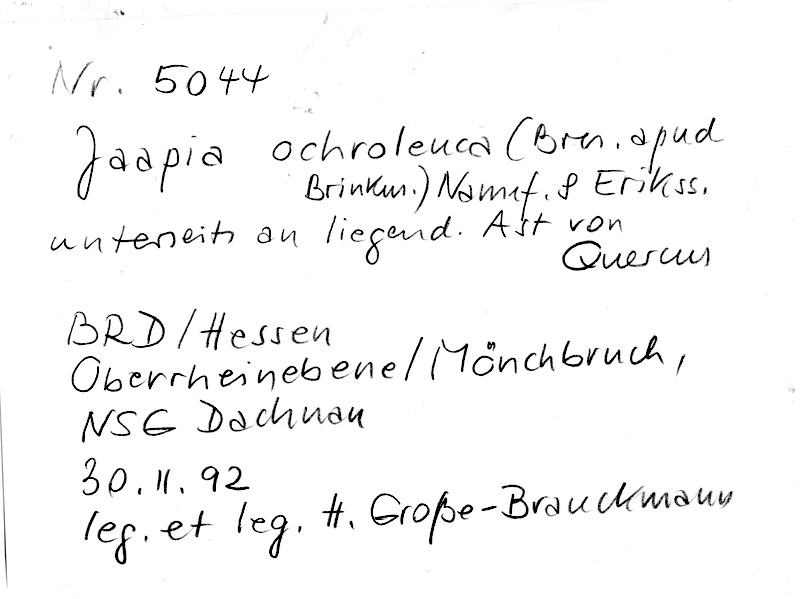 Nr. 5044
Jaapia ochroleuca (Bres. apud
Brinkm.) Nannf. & Erikss.
unterseits an liegend. Ast von
Quercus
BRD/Hessen
Oberrheinebene/Mönchbruch,
NSG Dachnau
30.11.92
leg. et leg. H. Große-Brauckmann